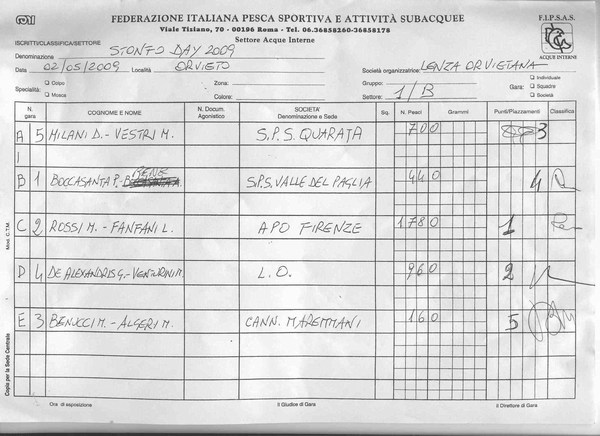 FEDERAZIONE ITALIANA PESCA SPORTIVA E ATTIVITÀ SUBACQUEE
Viale Tiziano, 70 - 00196 Roma - Tel. 06.36858260-36858178
Settore Acque Interne
F.I.P.S.A.S.
ACQUE INTERNE
ISCRITTI/CLASSIFICA/SETTORE
Denominazione STONFO DAY 2009
Data 02/05/2009 Località ORVIETO Società organizzatrice: LENZA ORVIETANA
Specialità: Colpo Mosca Zona: Colore: Gruppo: Settore: 1/B Gara: Individuale Squadre Società
N. gara COGNOME E NOME N. Docum. Agonistico SOCIETA' Denominazione e Sede Sq. N. Pesci Grammi Punti/Piazzamenti Classifica
A 5 MILANI D. - VESTRI M. S.P.S. QUARATA 700 3
B 1 BOCCASANTA P. - RENE S.P.S. VALLE DEL PAGLIA 440 4
C 2 ROSSI M. - FANFANI L. APO FIRENZE 1780 1
D 4 DE ALEXANDRIS G. - VENTURINI M. L.O. 960 2
E 3 BENUCCI M. - ALGERI M. CANN. MAREMMANI 160 5
Ora di esposizione Il Giudice di Gara Il Direttore di Gara
Mod. C.T.M.
Copia per la Sede Centrale